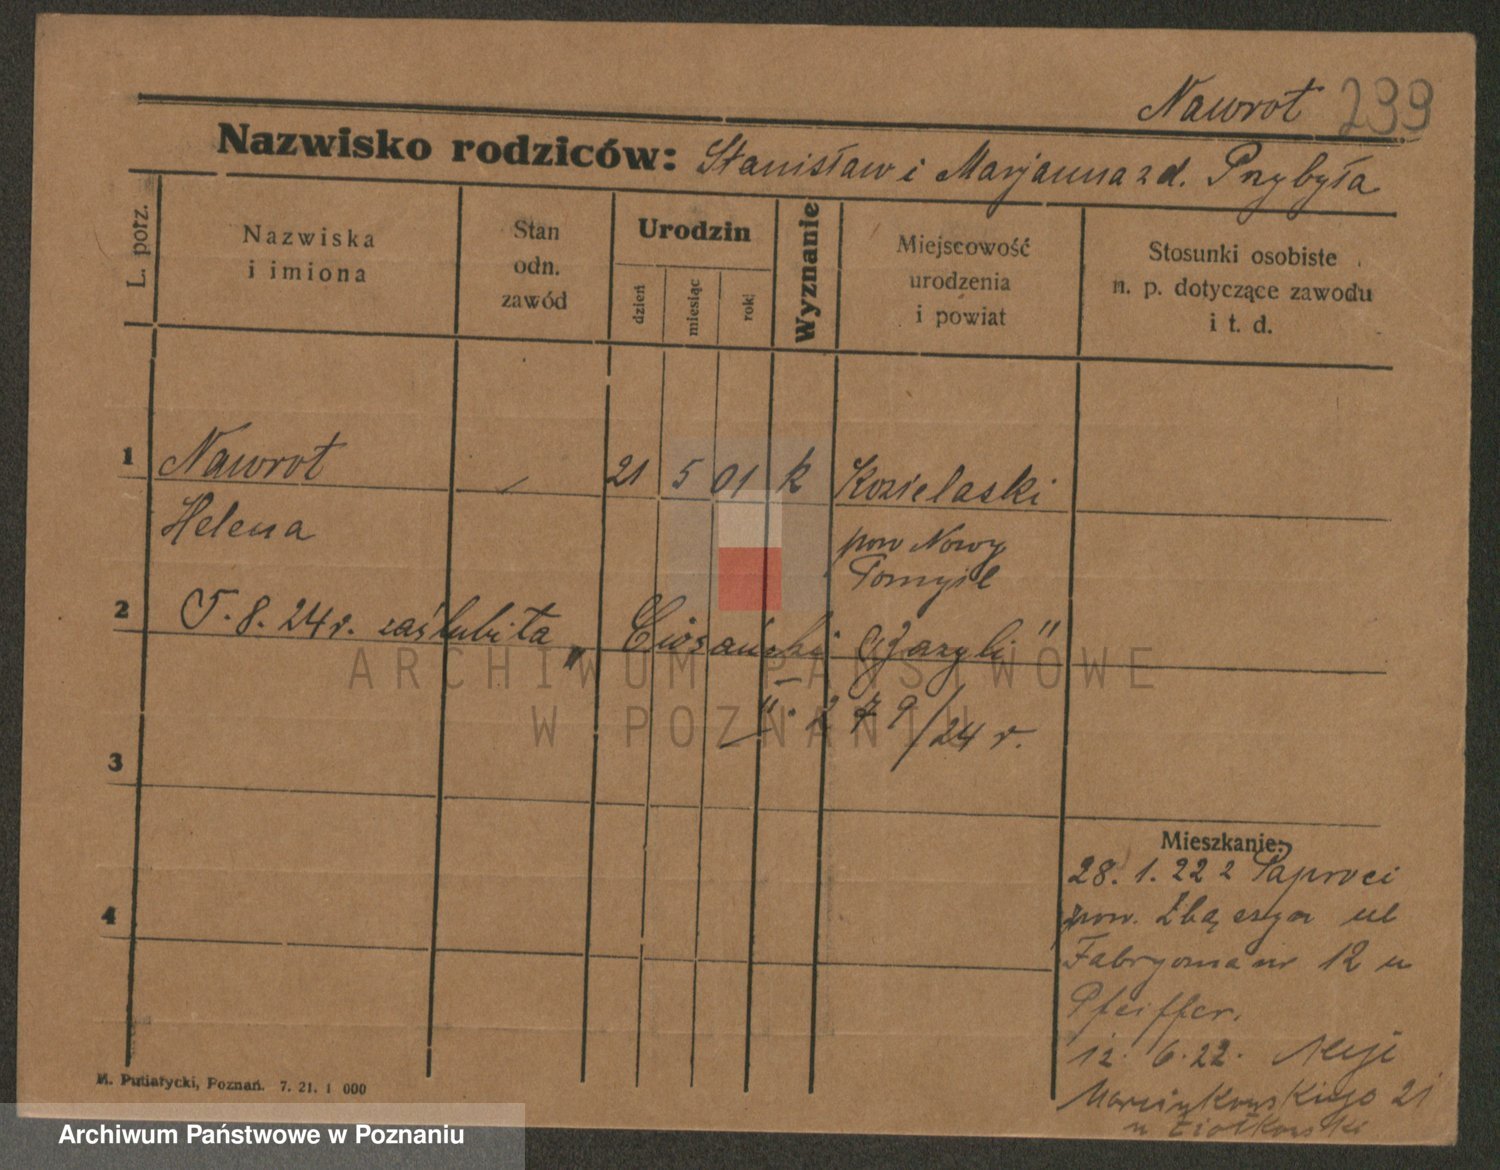 Nawrot 299
Nazwisko rodziców: Stanisław i Marjanna z d. Przybyła
L. porz.
Nazwiska
i imiona
Stan
odn.
zawód
Urodzin
dzień
miesiąc
rok
Wyznanie
Miejscowość
urodzenia
i powiat
Stosunki osobiste
n. p. dotyczące zawodu
i t. d.
1 Nawrot 21 5 01 k Kozielaski
Helena pow Nowy
Tomyśl
2 5. 8. 24 r. zaślubiła „ Ciosański
279/24 r.
3
Mieszkanie:
28. 1. 22 z Paproci
pow. Zbąszyn ul
Fabryczna nr 12 u
Pfeiffer.
4
12. 6. 22. Aleje
Marcinkowskiego 21
u Ziołkowski
M. Putiatycki, Poznań. 7. 21. 1 000
ARCHIWUM PAŃSTWOWE
W POZNANIU
Archiwum Państwowe w Poznaniu